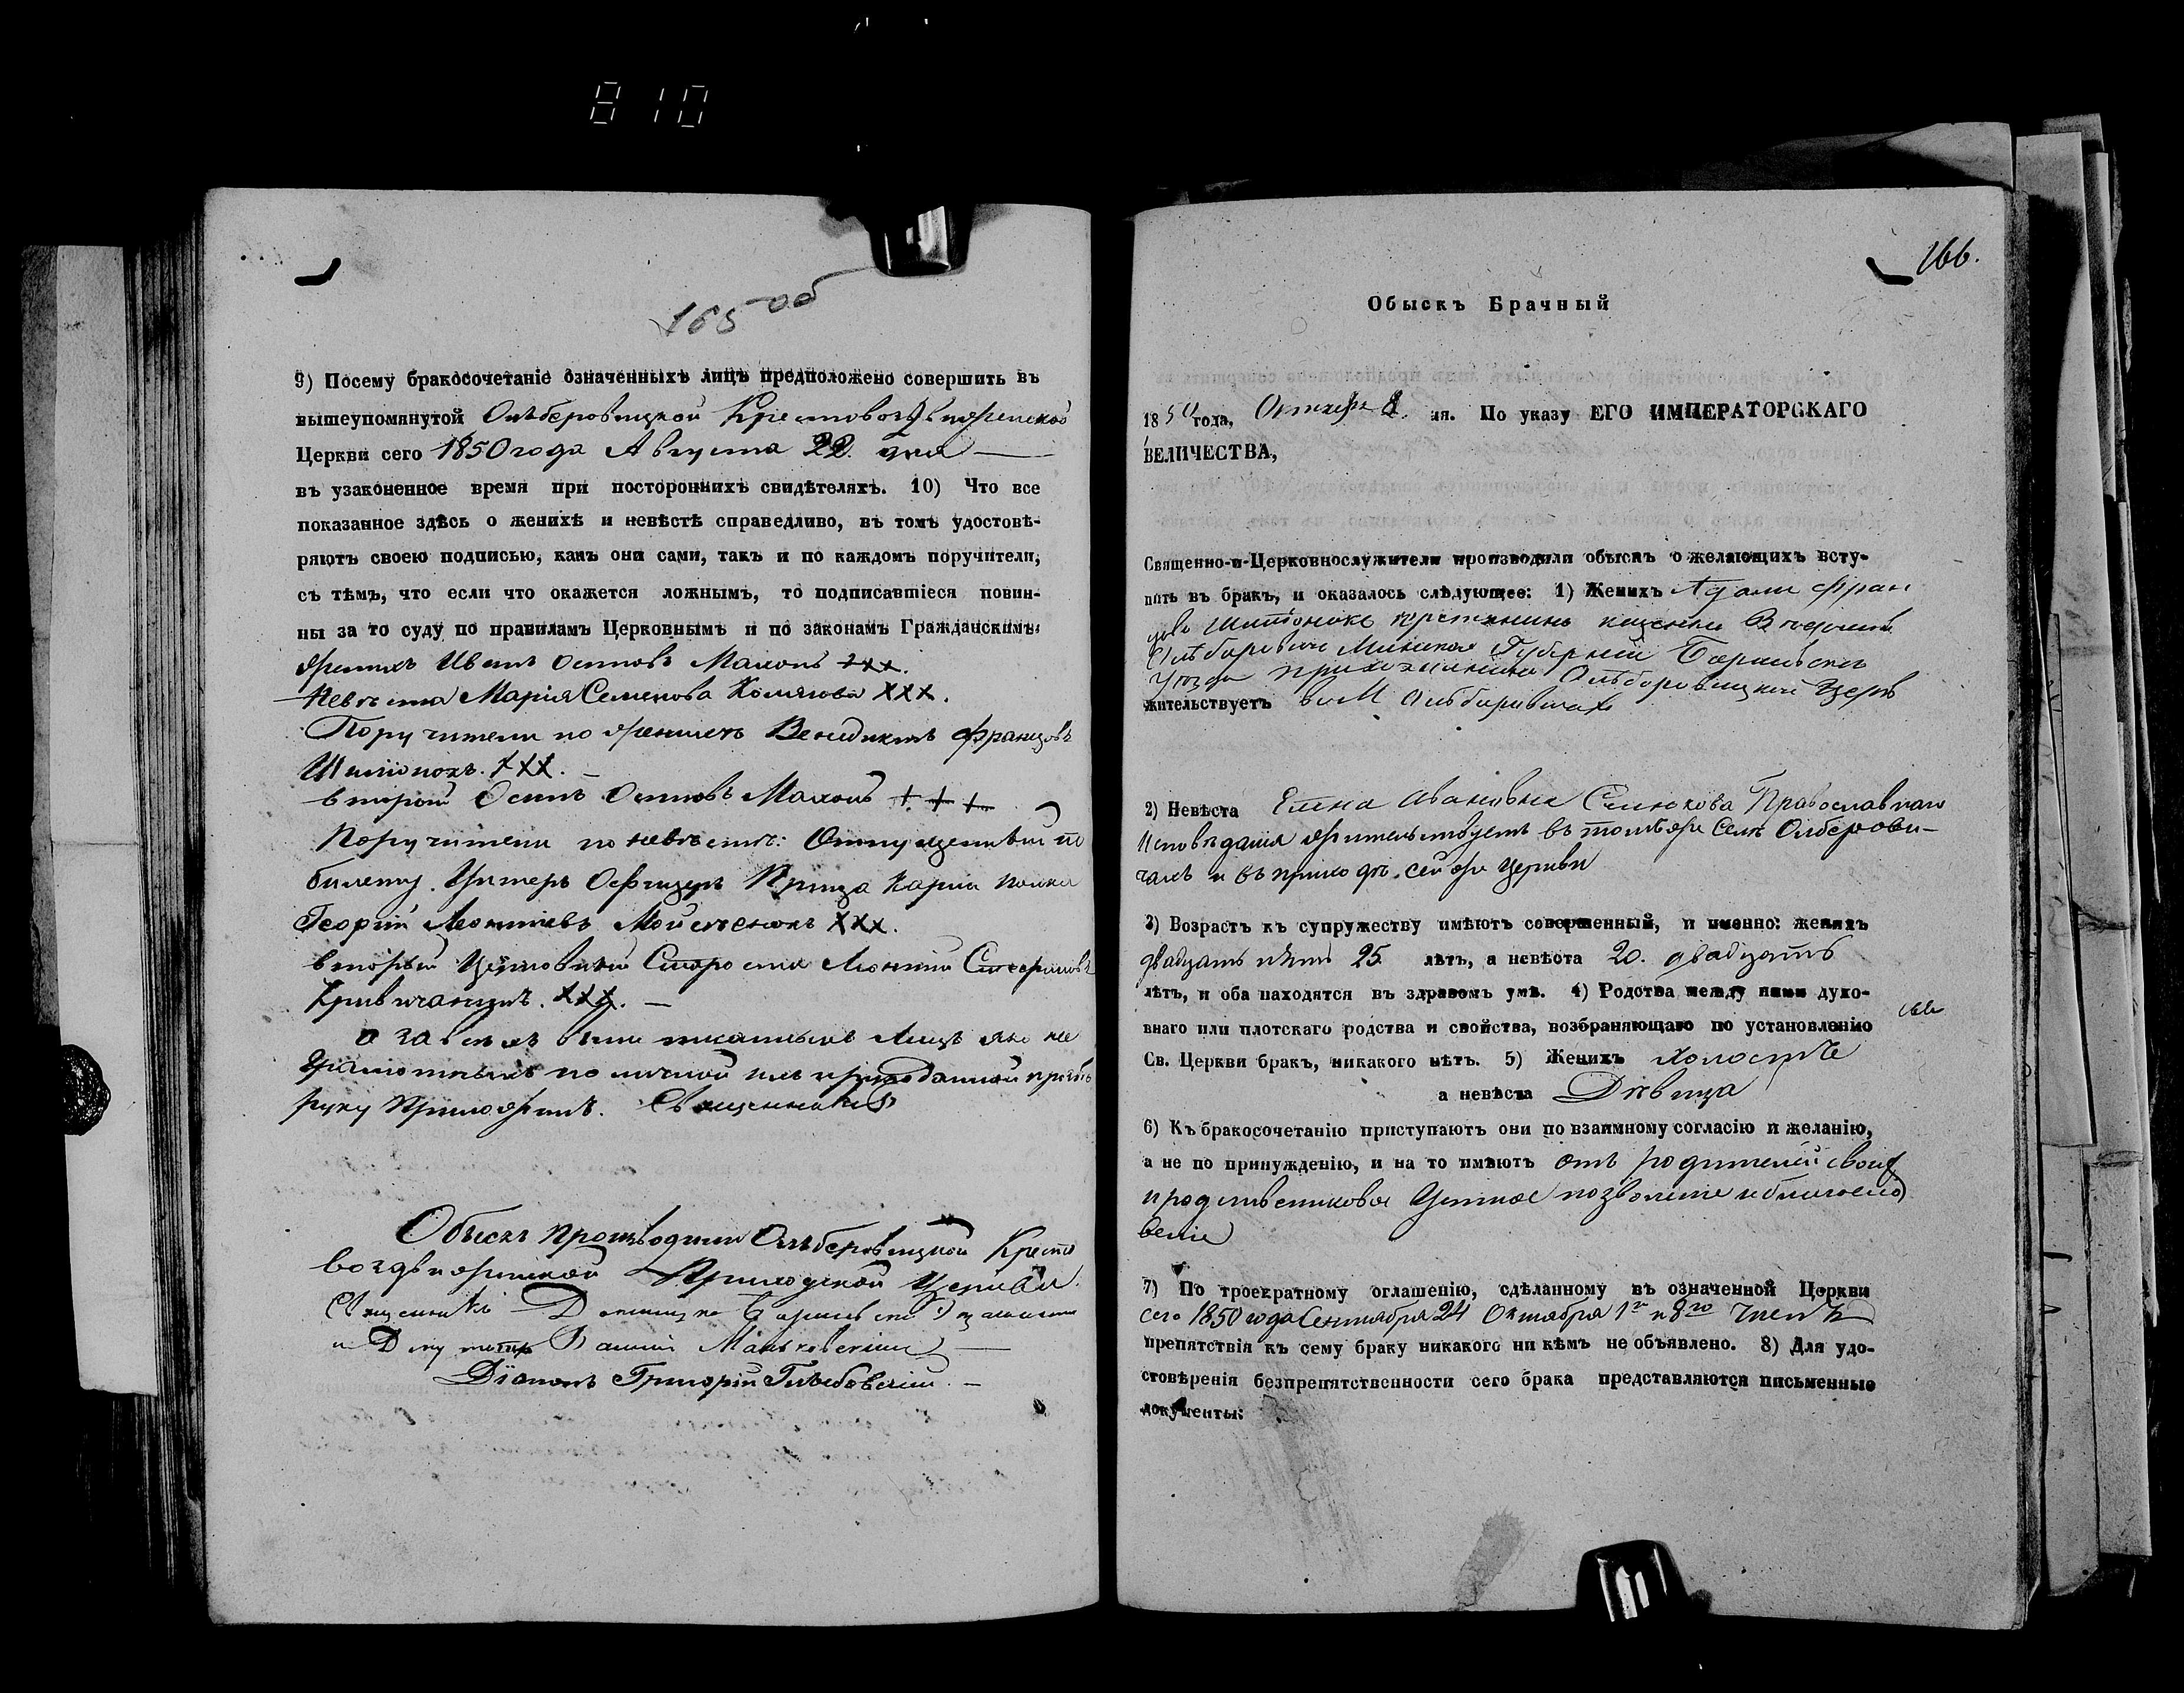 810
165 об
9) Посему бракосочетаніе означенныхъ лицъ предположено совершить въ
вышеупомянутой Ольберовицкой Крестовоздвиженской
Церкви сего 1850 года Августа 22. дня
въ узаконенное время при постороннихъ свидѣтеляхъ. 10) Что все
показанное здѣсь о женихѣ и невѣстѣ справедливо, въ томъ удостовѣ-
ряютъ своею подписью, какъ они сами, такъ и по каждомъ поручители,
съ тѣмъ, что если что окажется ложнымъ, то подписавшіеся повин-
ны за то суду по правиламъ Церковнымъ и по законамъ Гражданскимъ:
Женихъ Иванъ Осиповъ xxx.
Невѣста Марія Семенова xxx.
Поручители по женихѣ Венидиктъ Францовъ
Шипіонокъ. xxx.
вторый Осипъ Осиповъ + + +
Поручители по невѣстѣ: Отпущенный по
билету. Унтеръ Офицеръ Принца Карла полка
Георгій xxx.
вторый Церковный Староста
xxx.
а за всѣхъ лицъ яко не
грамотныхъ по личной ихъ прозбѣ
руку приложилъ. Священникъ
Обыскъ производили Ольберовицкой Кресто
воздвиженской Приходской Церкви
Священникъ
и
Діаконъ Григорій Глѣбовскій.
166.
Обыскъ Брачный
1850 года, Октября 8. дня. По указу ЕГО ИМПЕРАТОРСКАГО
ВЕЛИЧЕСТВА,
Священно-и-Церковнослужители производили обыскъ о желающихъ всту-
пить въ бракъ, и оказалось слѣдующее: 1) Женихъ Адамъ Фран
цовъ Шипіонокъ крестьянинъ
Минской Губерніи Борисовскаго
Уѣзда прихожанинъ Ольберовицкой Церкв
жительствуетъ въ М Ольберовичахъ
2) Невѣста Елена Ивановна Сенюкова Православнаго
Исповѣданія жительствуетъ въ томъ же Селѣ Олберови-
чахъ и въ приходѣ сей же Церкви
3) Возрастъ къ супружеству имѣютъ совершенный, и именно: женихъ
двадцать пять 25 лѣтъ, а невѣста 20. двадцать
лѣтъ, и оба находятся въ здравомъ умѣ. 4) Родства между ними духо-
внаго или плотскаго родства и свойства, возбраняющаго по установленію
Св. Церкви бракъ, никакого нѣтъ. 5) Женихъ холостъ
а невѣста Дѣвица
6) Къ бракосочетанію приступаютъ они по взаимному согласію и желанію,
а не по принужденію, и на то имѣютъ отъ родителей своих
и родственниковъ позволеніе и благосло
веніе
7) По троекратному оглашенію, сдѣланному въ означенной Церкви
сего 1850 года Сентября 24 Октября 1го и 8го
препятствія къ сему браку никакого ни кѣмъ не объявлено. 8) Для удо-
стовѣренія безпрепятственности сего брака представляются письменные
документы: